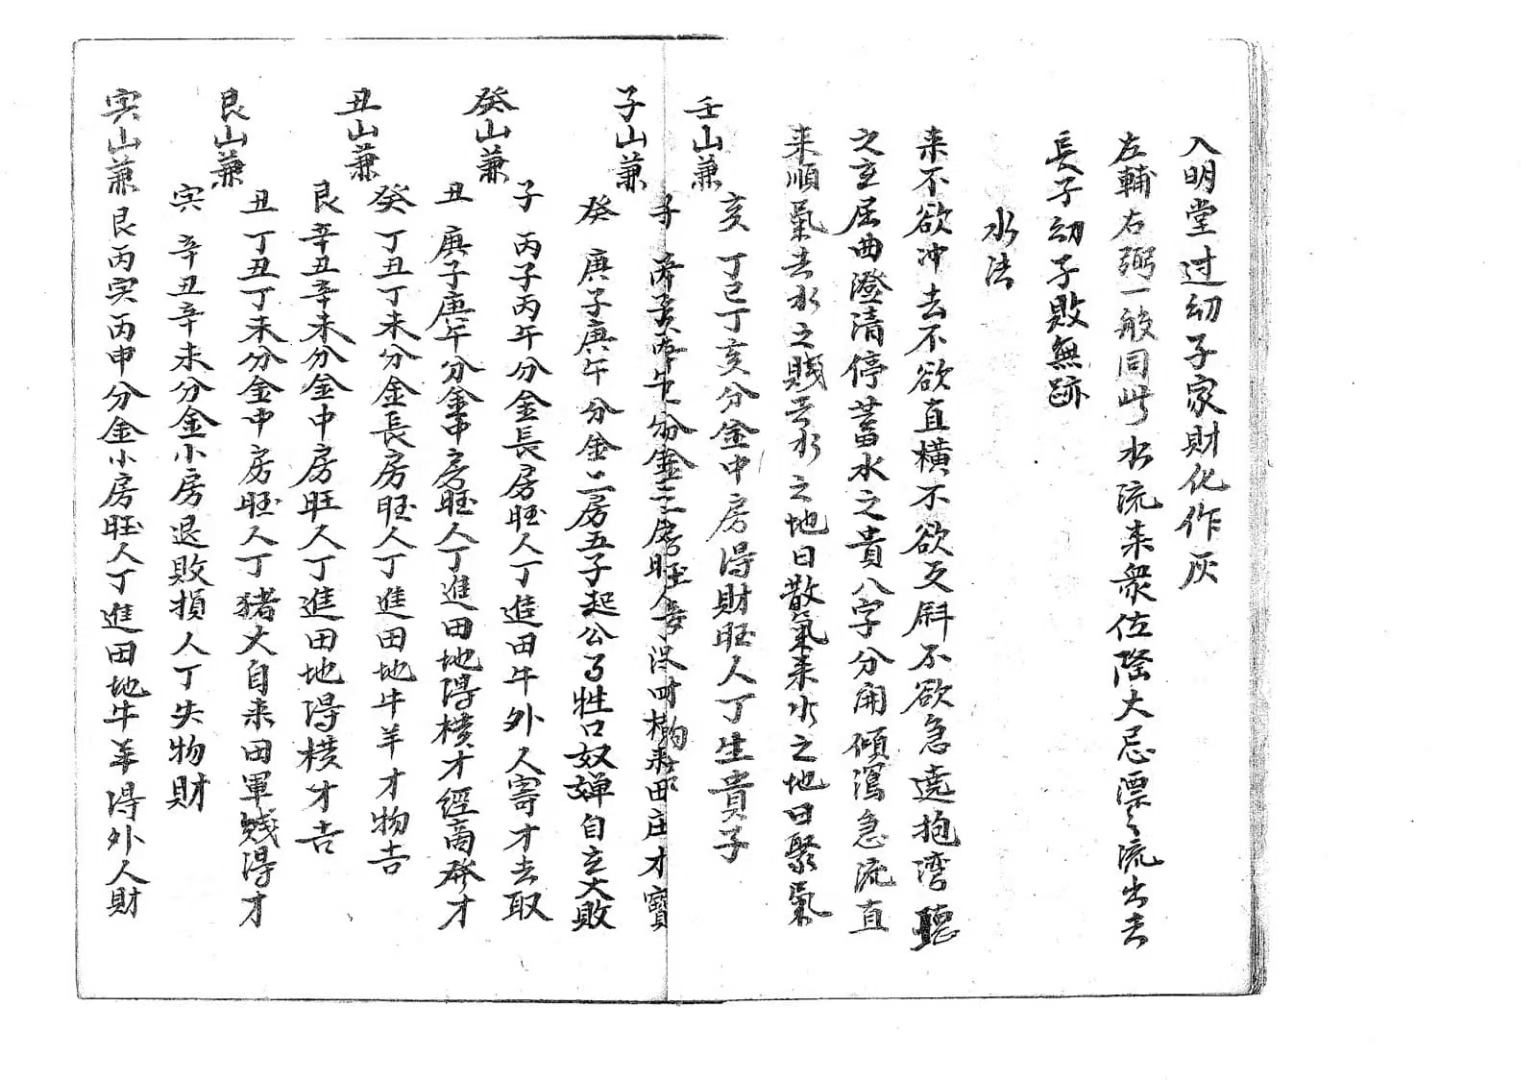 入明堂过幼子家財化作灰
左輔右弼一般同此水流来衆位隆大忌漂之流出去
長子幼子敗無跡
水法
来不欲冲去不欲直横不欲反斜不欲急遶抱湾聴
之玄屈曲澄清停蓄水之貴八字分開傾瀉急流直
来順氣去水之賤去水之地曰散氣来水之地曰聚氣
壬山兼
亥丁巳丁亥分金中房得財旺人丁生貴子
子丙子丙午分金二房旺人
田庄才寳
子山兼
癸庚子庚午分金二房五子起公了牲口奴婢自立大敗
子丙子丙午分金長房旺人丁進田牛外人寄才去取
癸山兼
丑庚子庚午分金中房旺人丁進田地得横才經商發才
癸丁丑丁未分金長房旺人丁進田地牛羊才物吉
丑山兼
艮辛丑辛未分金中房旺人丁進田地得横才吉
丑丁丑丁未分金中房旺人丁猪犬自来田軍賊得才
艮山兼
寅辛丑辛未分金小房退敗損人丁失物財
寅山兼艮丙寅丙申分金小房旺人丁進田地牛羊得外人財